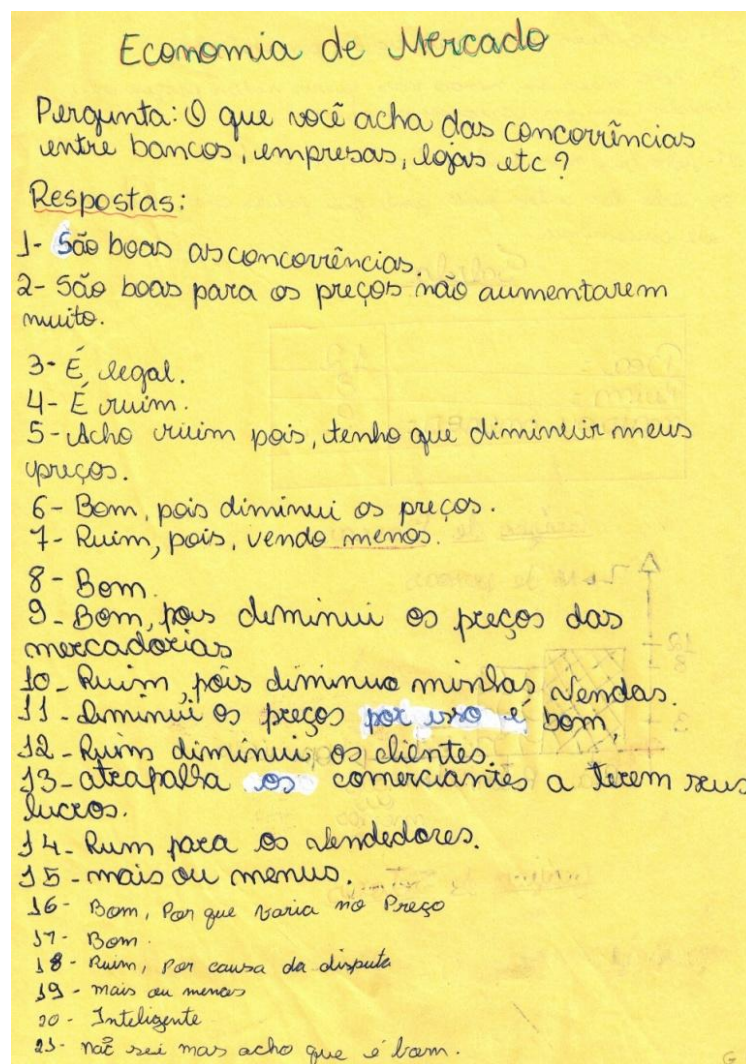 Economia de Mercado
Pergunta: O que você acha das concorrências
entre bancos, empresas, lojas etc?
Respostas:
1- São boas as concorrências.
2- São boas para os preços não aumentarem
muito.
3- É legal.
4- É ruim.
5- Acho ruim pois, tenho que diminuir meus
preços.
6- Bom, pois diminui os preços.
7- Ruim, pois, vendo menos.
8- Bom.
9- Bom, pois deminui os preços das
mercadorias
10- Ruim, pois diminua minhas vendas.
11- deminui os preços por isso é bom,
12- Ruim diminui, os clientes.
13- atrapalha os comerciantes a terem seus
lucros.
14- Rum para os vendedores.
15- mais ou menus.
16- Bom, Por que varia no Preço
17- Bom.
18- Ruim, Por causa da disputa
19- mais ou menos
20- Inteligente
21- não sei mas acho que é bom.